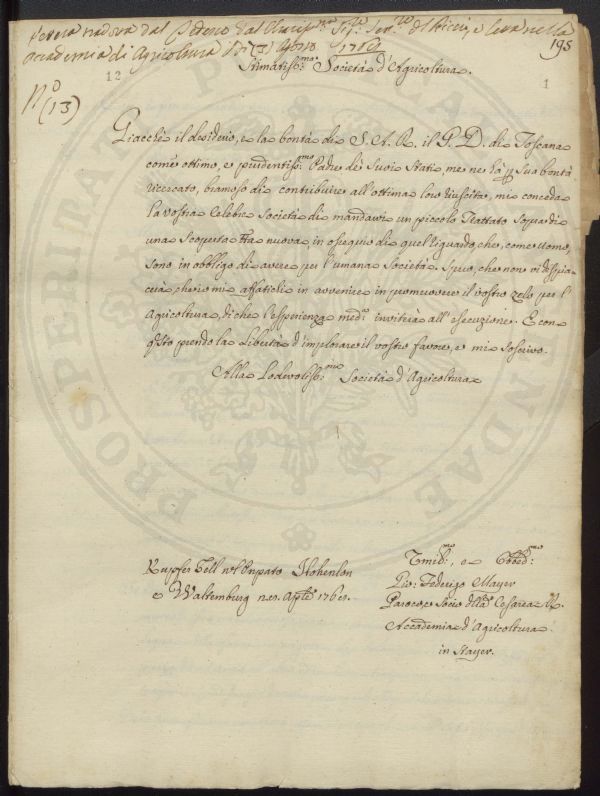 Accademia di Agricoltura il dì (3) Agosto 1768
195
12
1
N.o (13)
Stimatiss:mo Società d'Agricoltura.
Giacchè il desiderio, e la bontà di S. A. R. il G. D. di Toscana
com'è ottimo, e prudentiss:mo Padre de Suoi Stati, me ne hà p sua bontà
ricercato, bramoso di contribuire all'ottima loro riuscita, mi conceda
la vostra Celebre Società di mandarvi un piccolo Trattato sopra di
una Scoperta tta nuova in ossequio di quel riguardo, che, come Uomo,
sono in obbligo di avere per l'umana Società. Spero, che non vi dispia-
cerà, che io mi affatichi in avvenire in promuovere il vostro zelo per l'
Agricoltura, di che l'esperienza med: inviterà all'esecuzione. E con
qsto prendo la libertà d'implorare il vostro favore, e mi soscrivo.
Alla Lodevoliss:mo Società d'Agricoltura
Kupfer Zell Hohenlon
e Waltemburg Aple 1768.
Umil:mo, e Obbed:mo
Gio: Federigo Mayer
Paroco, e Socio della Cesarea R.
Accademia d'Agricoltura
in Stayer.
PROSPERITATI PUBLICAE AUGENDAE